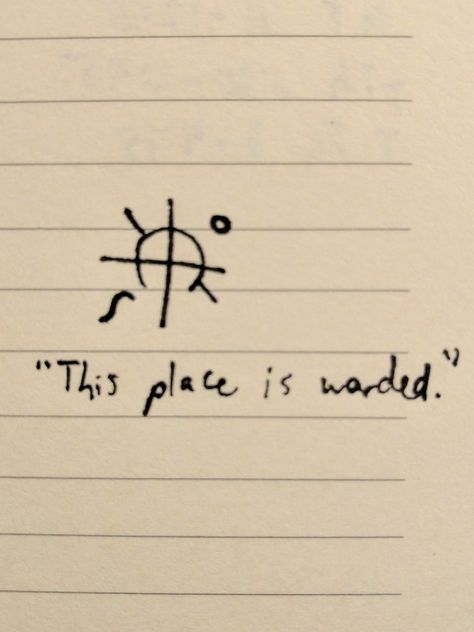 "This place is warded."